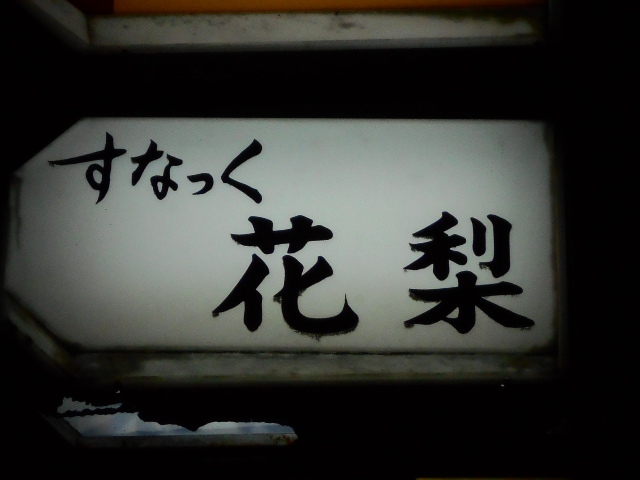 すなっく
花梨